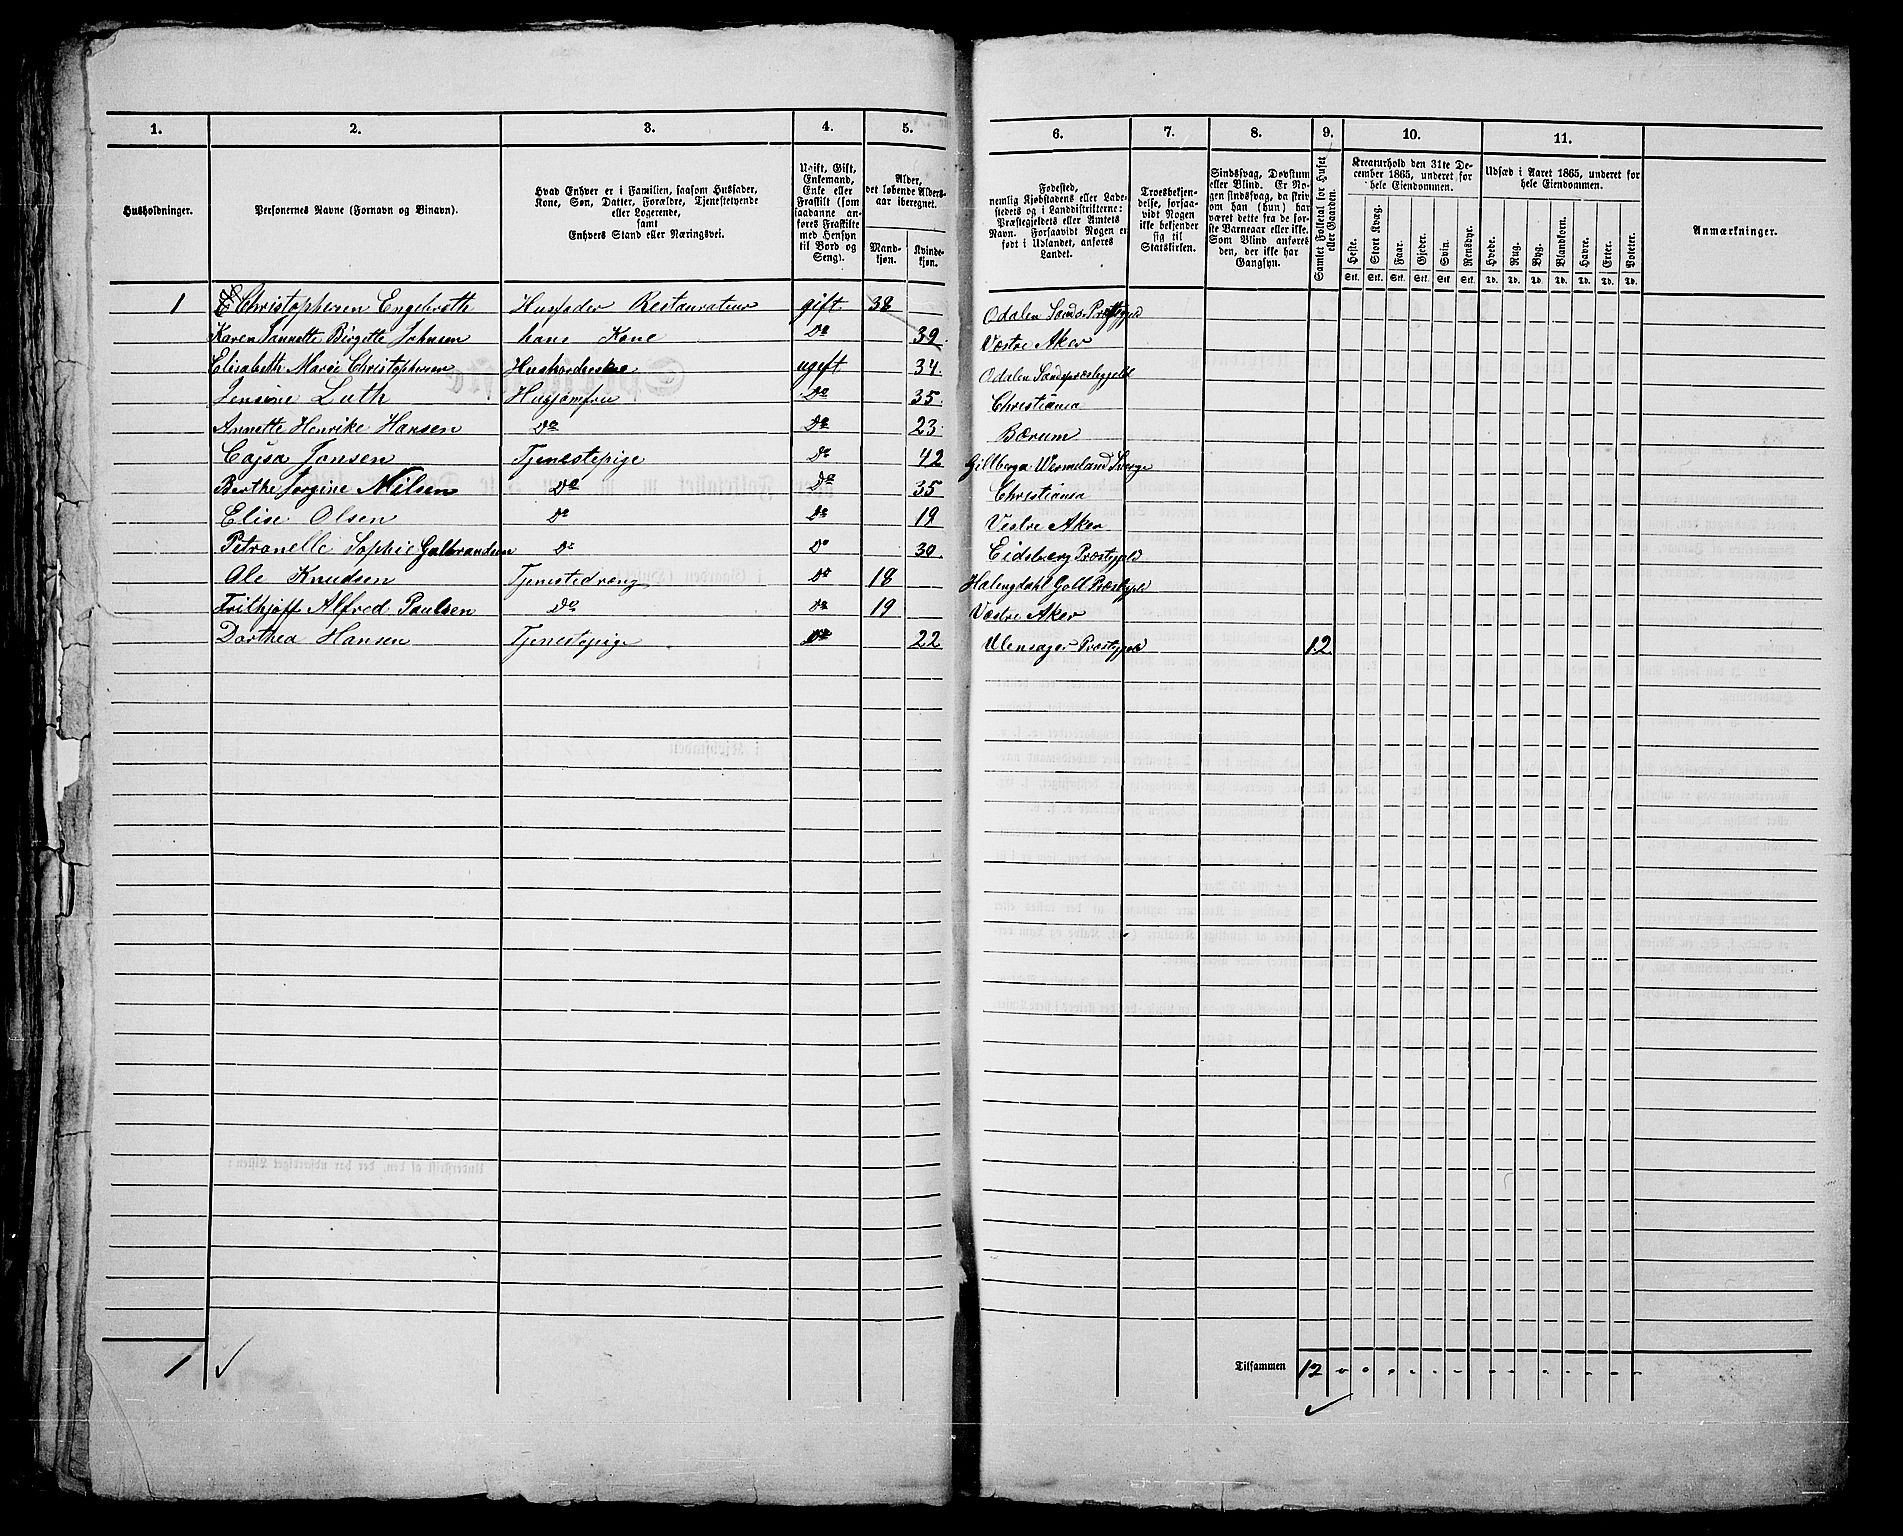 1. 2. 3. 4. 5. 6. 7. 8. 9. 10. 11.
Husholdninger.
Personernes Navne (Fornavn og Binavn).
Hvad Enhver er i Familien, saasom Husfader,
Kone, Søn, Datter, Forældre, Tjenestetyende
eller Logerende,
samt
Enhvers Stand eller Næringsvei.
Ugift, Gift,
Enkemand,
Enke eller
Fraskilt (som
saadanne an-
føres Fraskilte
med Hensyn
til Bord og
Seng).
Alder,
det løbende Alders-
aar iberegnet.
Mand-
kjøn.
Kvinde-
kjøn.
Fødested,
nemlig Kjøbstadens eller Lade-
stedets og i Landdistrikterne:
Præstegjeldets eller Amtets
Navn. Forsaavidt Nogen er
født i Udlandet, anføres
Landet.
Troesbekjen-
delse, forsaa-
vidt Nogen
ikke bekjender
sig til
Statskirken.
Sindssvag, Døvstum
eller Blind. Er No-
gen sindssvag, da skriv
om han (hun) har
været dette fra de før-
ste Barneaar ikke.
Som Blind anføres
den, der ikke har
Gangsyn.
Samlet Folketal for Huset
eller Gaarden.
Kreaturhold den 31te De-
cember 1865, underet for
hele Eiendommen.
Heste. Stort Kvæg. Faar. Gjeder. Svin. Rensdyr.
Stk. Stk. Stk. Stk. Stk. Stk.
Udsæd i Aaret 1865, underet for
hele Eiendommen.
Hvede. Rug. Byg. Blandkorn. Havre. Erter. Poteter.
Td. Td. Td. Td. Td. Td. Td.
Anmærkninger.
1 Christophersen Engebreth Husfader Restauratør gift 38 Odalen Sands Præstgjeld
Karen Jannette Birgitte Johnsen hans Kone Do 39. Vestre Aker
Elisabeth Marie Christophersen Husholderske ugift 34. Odalen Sandspræstegjeld
Jensine Luth Husjomfru Do 35. Christiania
Annette Henrike Hansen Do Do 23. Bærum
Cajsa Jonsen Tjenestepige Do 42 Gillberga Wermeland Sverge
Berthe Jorgine Nilsen Do Do 35 Christiania
Elise Olsen Do Do 19 Vestre Aker
Petronelle Sophie Gulbrandsen Do Do 30. Eidsberg Præstegjeld
Ole Knudsen Tjenestedræng Do 18 Halingdahl Goll Præstegjeld
Frithjoff Alfred Paulsen Do Do 19 Vestre Aker
Dorthea Hansen Tjenestepige Do 22 Ulensager Præstegjeld 12
1 Tilsammen 12